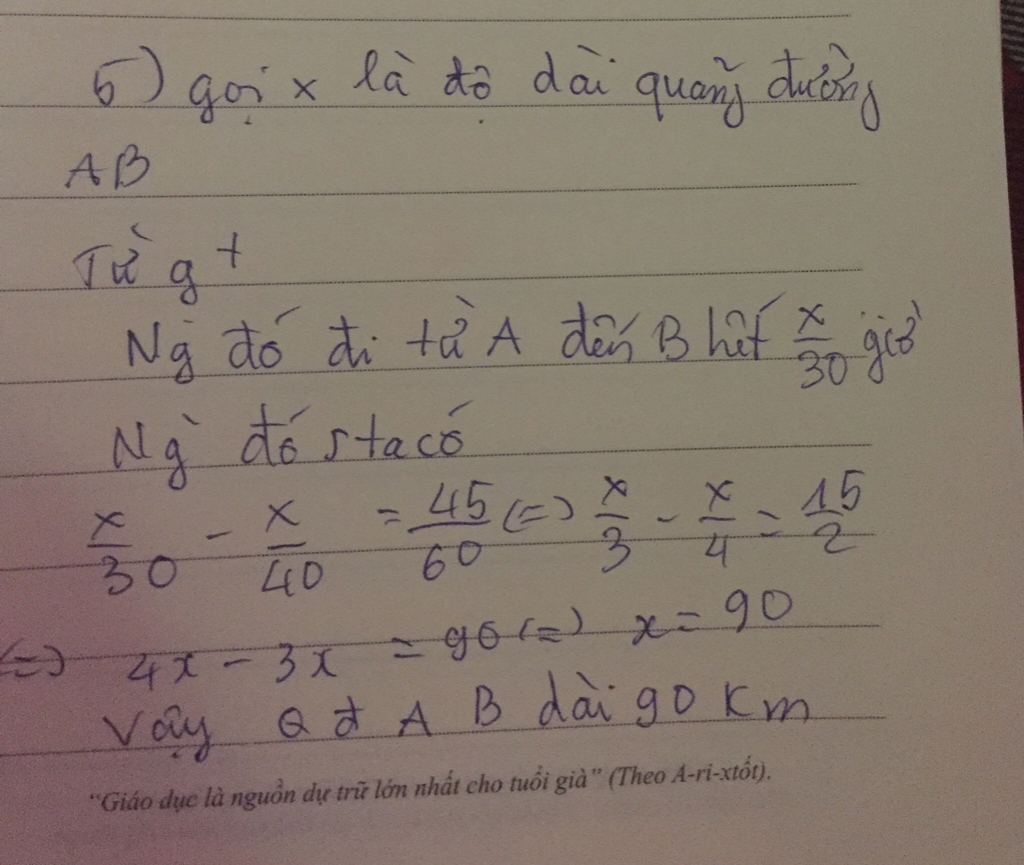 5) gọi x là độ dài quãng đường
AB
Từ g +
Ng đó đi từ A đến B hết x/30 giờ
Ng đó sta có
x/30 - x/40 = 45/60 (=) x/3 - x/4 = 15/2
(=) 4x - 3x = 90 (=) x = 90
Vậy Q đ A B dài 90 Km
“Giáo dục là nguồn dự trữ lớn nhất cho tuổi già” (Theo A-ri-xtốt).